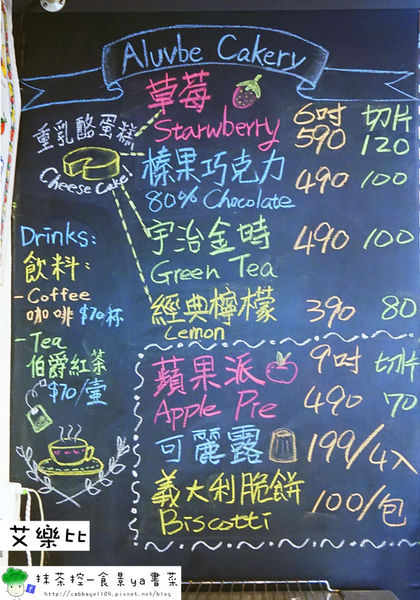 Aluvbe Cakery
重乳酪蛋糕
Cheese Cake
6吋 切片
草莓
Starwberry 590 120
榛果巧克力
80% Chocolate 490 100
宇治金時
Green Tea 490 100
經典檸檬
Lemon 390 80
Drinks:
飲料:
-Coffee
咖啡 $70/杯
-Tea
伯爵紅茶
$70/壺
9吋 切片
蘋果派
Apple Pie 490 70
可麗露 199/4入
義大利脆餅
Biscotti 100/包
艾樂比
抹茶控-食景ya書菜
http://cabbage1109.pixnet.net/blog